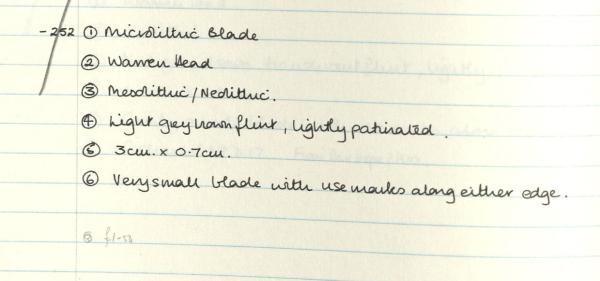 -252 ① Microlithic Blade
② Warren Head
③ Mesolithic/Neolithic.
④ Light grey brown flint, lightly patinated.
⑤ 3cm. x 0.7cm.
⑥ Very small blade with use marks along either edge.